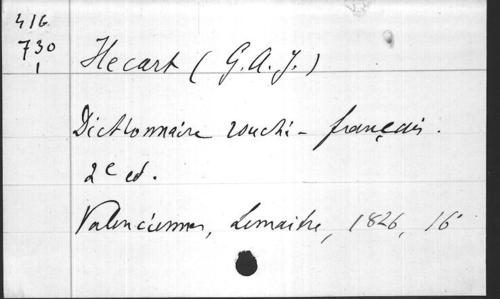 416
730
1
Hecart (G.A.J.)
Dictionnaire rouchi-français.
2e ed.
Valenciennes, Lemaitre, 1826, 16°